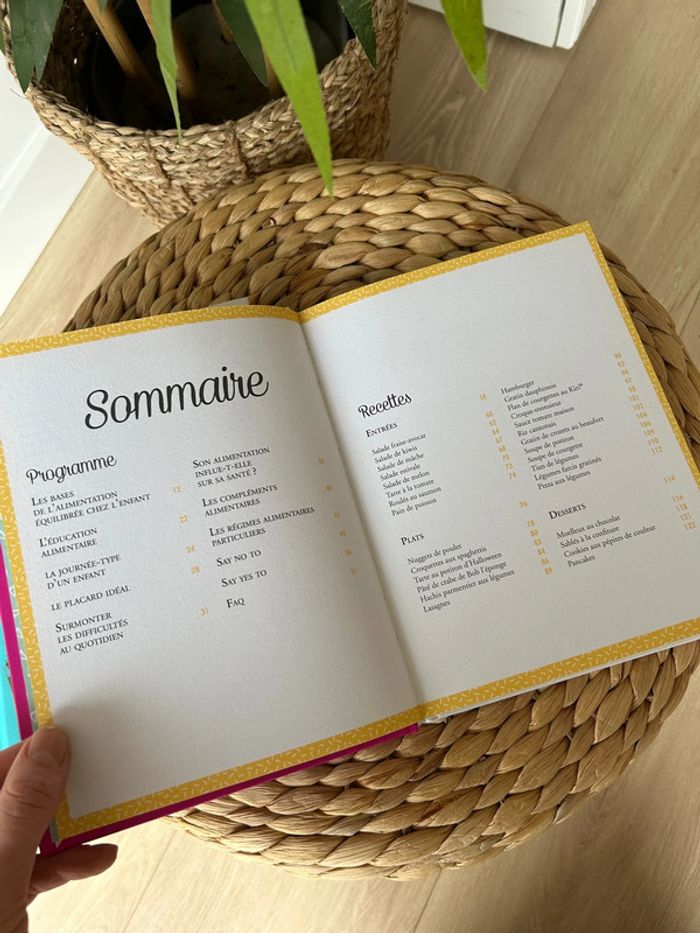 Sommaire
Programme
LES BASES
DE L'ALIMENTATION
ÉQUILIBRÉE CHEZ L'ENFANT 12
L'ÉDUCATION
ALIMENTAIRE 22
LA JOURNÉE-TYPE
D'UN ENFANT 24
LE PLACARD IDÉAL 28
SURMONTER
LES DIFFICULTÉS
AU QUOTIDIEN 31
SON ALIMENTATION
INFLUE-T-ELLE
SUR SA SANTÉ ?
LES COMPLÉMENTS
ALIMENTAIRES
LES RÉGIMES ALIMENTAIRES
PARTICULIERS
SAY NO TO
SAY YES TO
FAQ
Recettes
ENTRÉES 58
Salade fraise-avocat 60
Salade de kiwis 62
Salade de mâche 64
Salade estivale 67
Salade de melon 68
Tarte à la tomate 70
Roulés au saumon 73
Pain de poisson 74
PLATS 76
Nuggets de poulet 78
Croquettes aux spaghettis
Tarte au potiron d'Halloween 83
Pâté de crabe de Bob l'éponge 84
Hachis parmentier aux légumes
Lasagnes 89
Hamburger 90
Gratin dauphinois
Flan de courgettes au Kiri®
Croque-monsieur 97
Sauce tomate maison 98
Riz cantonais 101
Gratin de crozets au beaufort 102
Soupe de potiron 104
Soupe de courgette 106
Tian de légumes 109
Légumes farcis gratinés 110
Pizza aux légumes 112
DESSERTS 114
Moelleux au chocolat 116
Sablés à la confiture 118
Cookies aux pépites de couleur 121
Pancakes